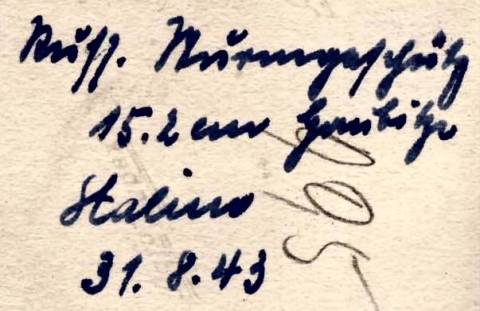 Russ. Sturmgeschütz
15.2 cm Haubitze
Stalino
31.8.43